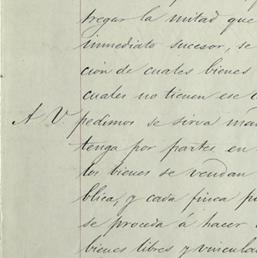 tregar la mitad que
inmediato sucesor, se
ción de cuales bienes
cuales no tienen ese
A V
pedimos se sirva
tenga por partes en
los bienes se vendan
blica, y cada finca
se proceda á hacer
bienes libres y